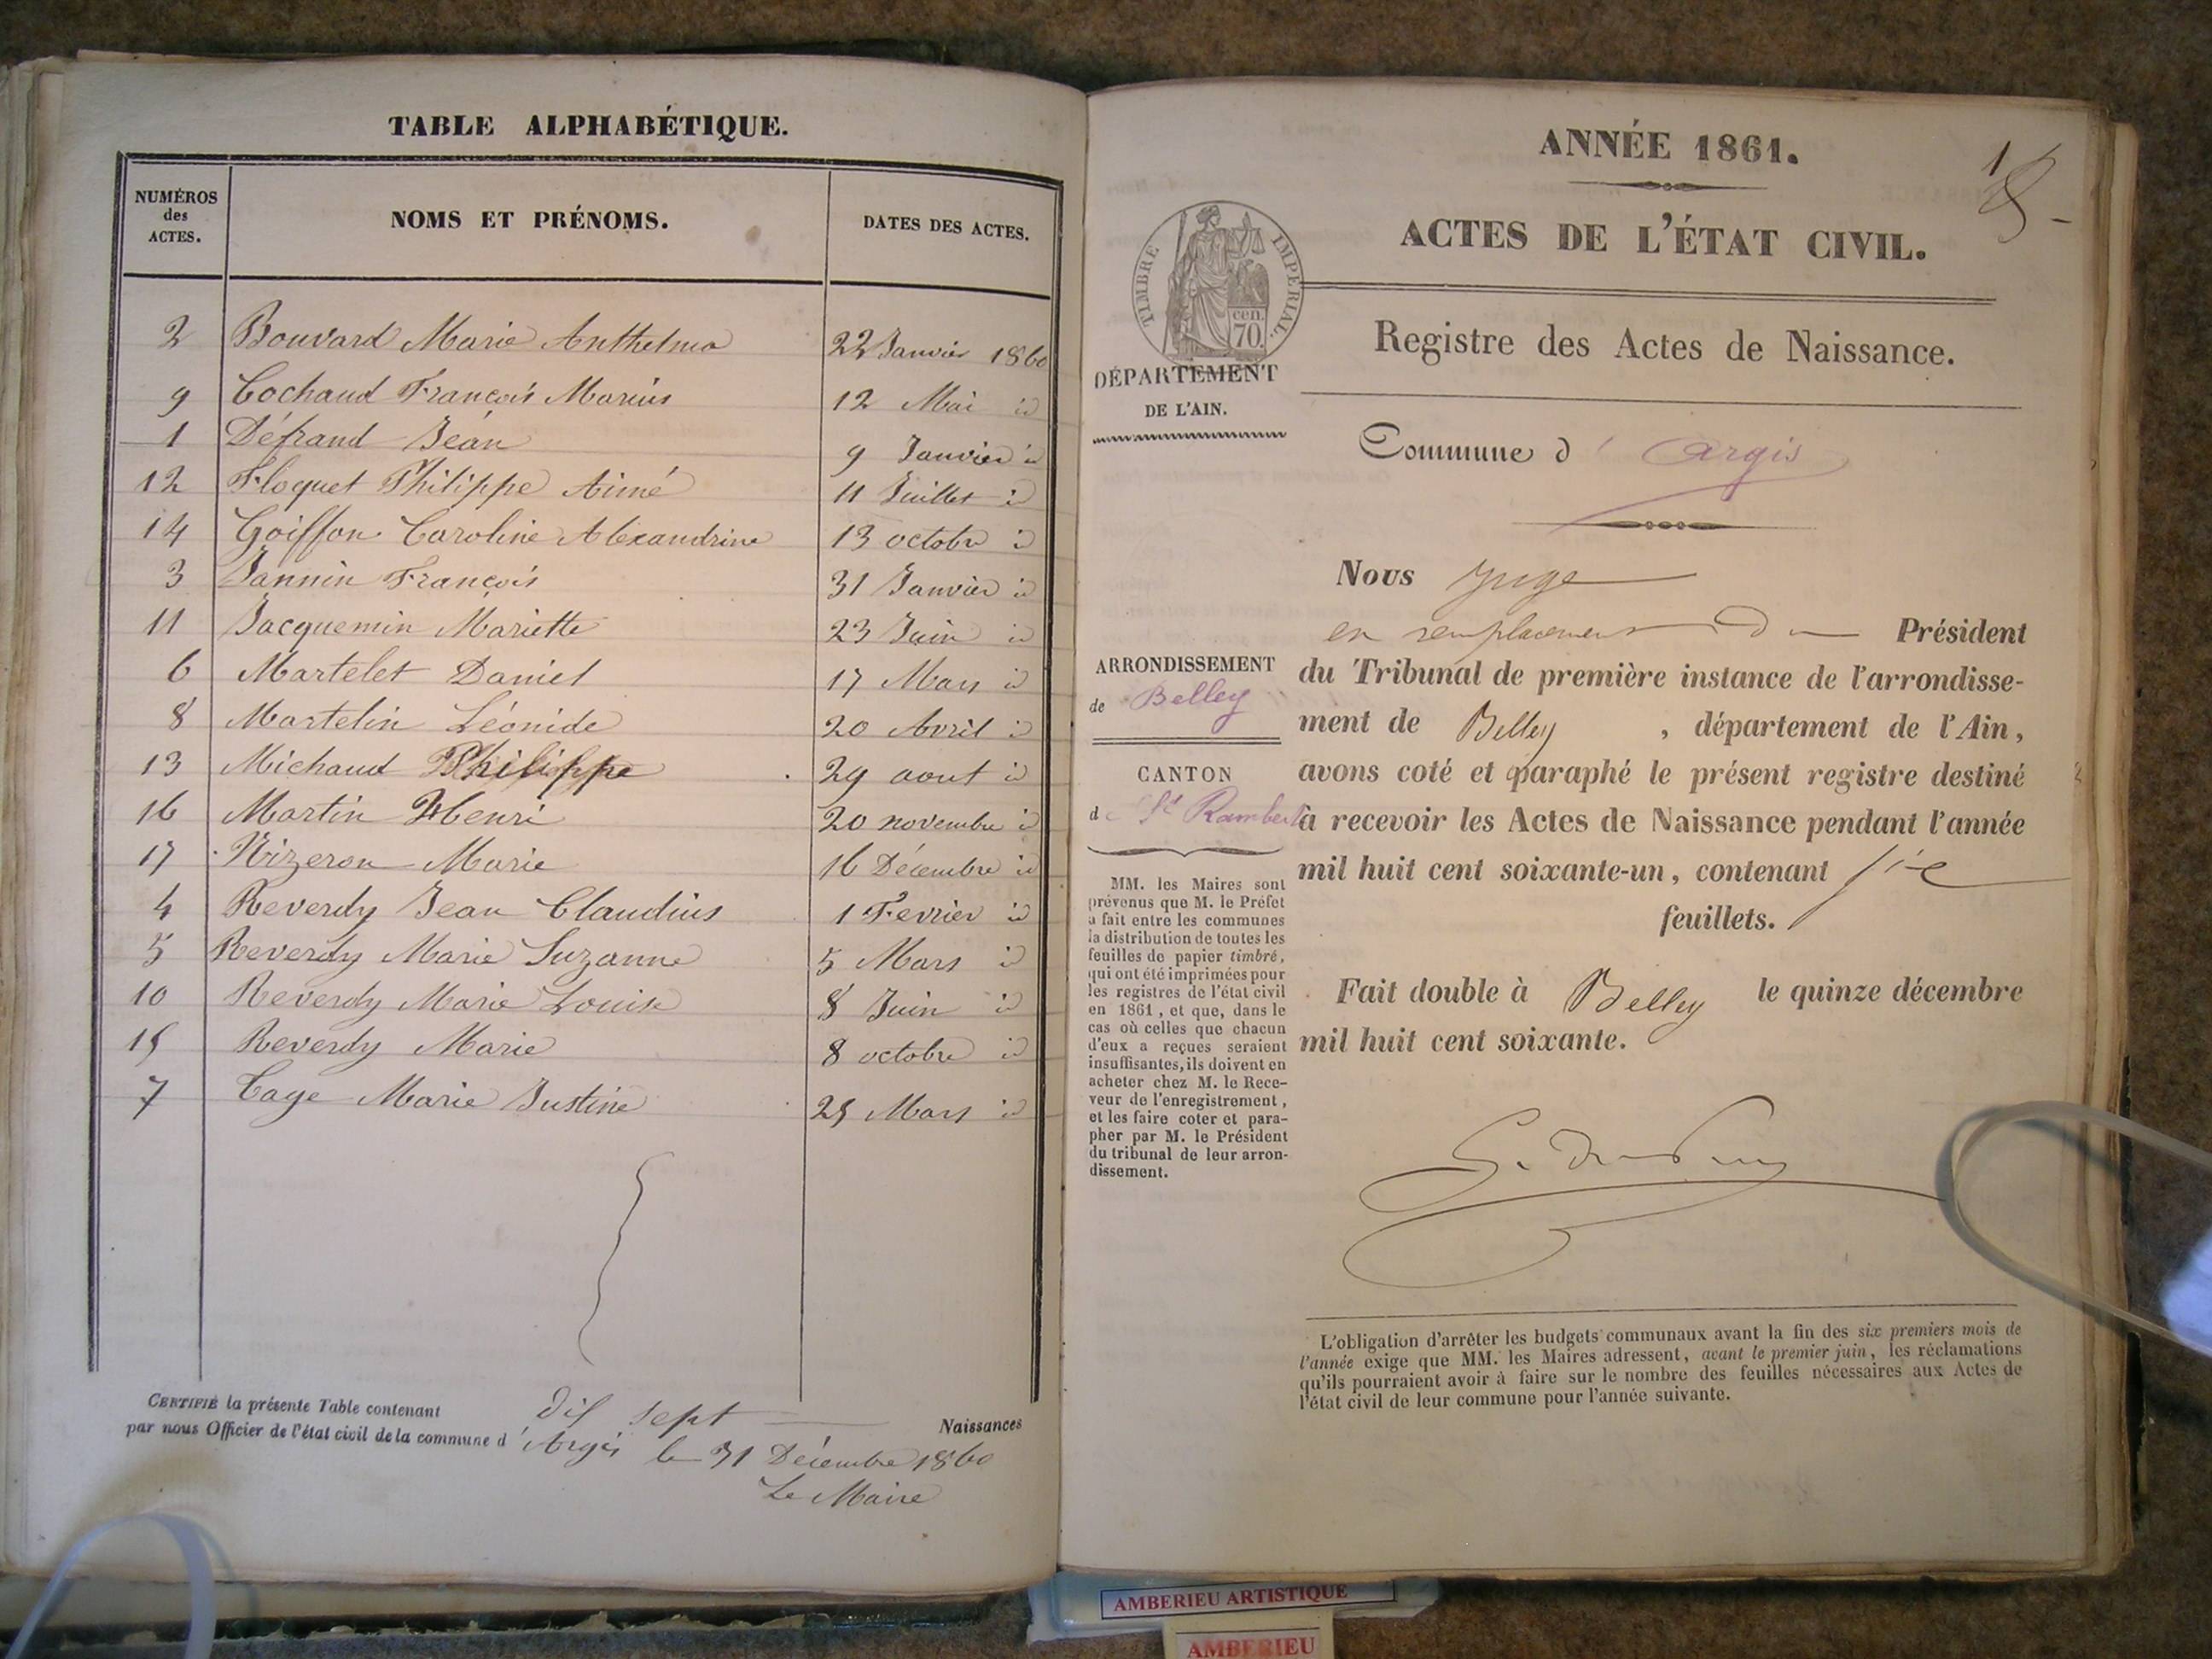 TABLE ALPHABÉTIQUE.
NUMÉROS des ACTES. NOMS ET PRÉNOMS. DATES DES ACTES.
2 Bouvard Marie Anthelma 22 Janvier 1860
9 Cochaud François Marius 12 Mai id
1 Défrand Jean 9 Janvier id
12 Floquet Philippe Aimé 11 Juillet id
14 Goiffon Caroline Alexandrine 13 octobre id
3 Jannin François 31 Janvier id
11 Jacquemin Mariette 23 Juin id
6 Martelet Daniel 17 Mars id
8 Martelin Léonide 20 Avril id
13 Michaud Philippe 29 aout id
16 Martin Henri 20 novembre id
17 Nizeron Marie 16 Décembre id
4 Reverdy Jean Claudius 1 Fevrier id
5 Reverdy Marie Suzanne 5 Mars id
10 Reverdy Marie Louise 8 Juin id
15 Reverdy Marie 8 octobre id
7 Cage Marie Justine 25 Mars id
CERTIFIÉ la présente Table contenant dix sept Naissances
par nous Officier de l'état civil de la commune d'Argis le 31 Décembre 1860
Le Maire
ANNÉE 1861.
1
ACTES DE L'ÉTAT CIVIL.
TIMBRE IMPÉRIAL.
cen.
70.
Registre des Actes de Naissance.
DÉPARTEMENT
DE L'AIN.
Commune d' Argis
ARRONDISSEMENT
de Belley
CANTON
de St Rambert
MM. les Maires sont
prévenus que M. le Préfet
a fait entre les communes
la distribution de toutes les
feuilles de papier timbré,
qui ont été imprimées pour
les registres de l'état civil
en 1861, et que, dans le
cas où celles que chacun
d'eux a reçues seraient
insuffisantes, ils doivent en
acheter chez M. le Rece-
veur de l'enregistrement,
et les faire coter et para-
pher par M. le Président
du tribunal de leur arron-
dissement.
Nous Juge
en remplacement du Président
du Tribunal de première instance de l'arrondisse-
ment de Belley, département de l'Ain,
avons coté et paraphé le présent registre destiné
à recevoir les Actes de Naissance pendant l'année
mil huit cent soixante-un, contenant six
feuillets.
Fait double à Belley le quinze décembre
mil huit cent soixante.
L'obligation d'arrêter les budgets communaux avant la fin des six premiers mois de
l'année exige que MM. les Maires adressent, avant le premier juin, les réclamations
qu'ils pourraient avoir à faire sur le nombre des feuilles nécessaires aux Actes de
l'état civil de leur commune pour l'année suivante.
AMBERIEU ARTISTIQUE
AMBERIEU